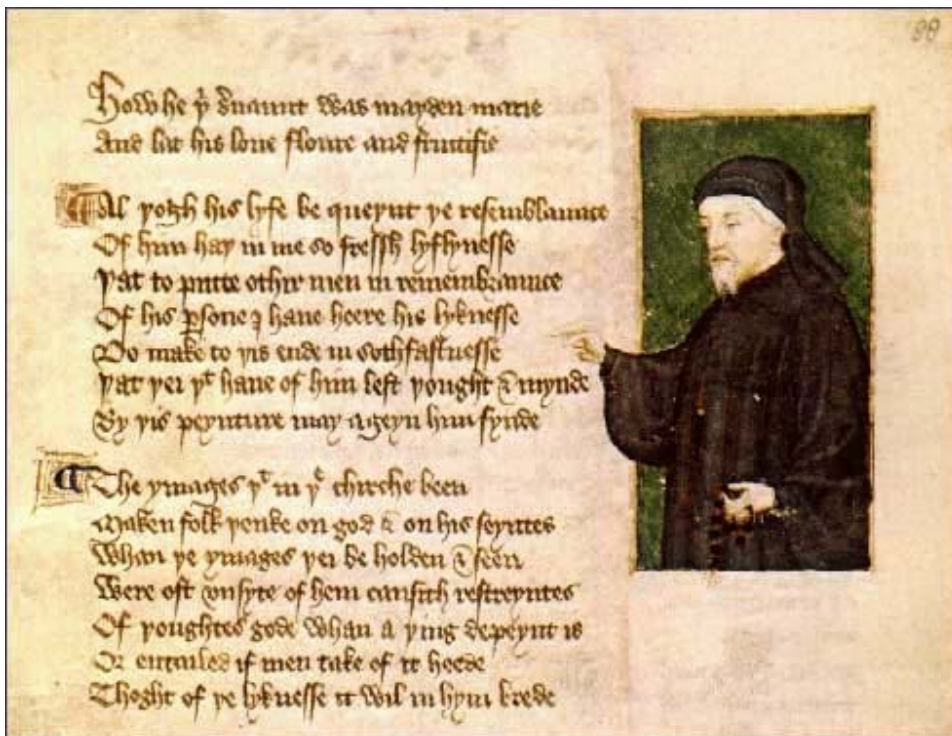 88
How he yͤ sͬuaunt was mayden marie
And lat his loue floure and fructifie
Al yogh his lyfe be queynt ye resemblaunce
Of him hay in me so fressh lyflynesse
Yat to putte othir men in remembraunce
Of his ꝑsone I haue heere his lyknesse
Do make to yis ende in sothfastnesse
Yat yei yᵗ haue of him left yought & mynde
By yis peynture may ageyn him fynde
The ymages yᵗ in yͤ chirche been
Maken folk yenke on god & on his seyntes
Whan ye ymages yei be holden & seen
Were oft vnsyte of hem causith restreyntes
Of youghtes gode whan a ying depeynt is
Or entailed if men take of it heede
Thoght of ye lyknesse it wil in hym brede